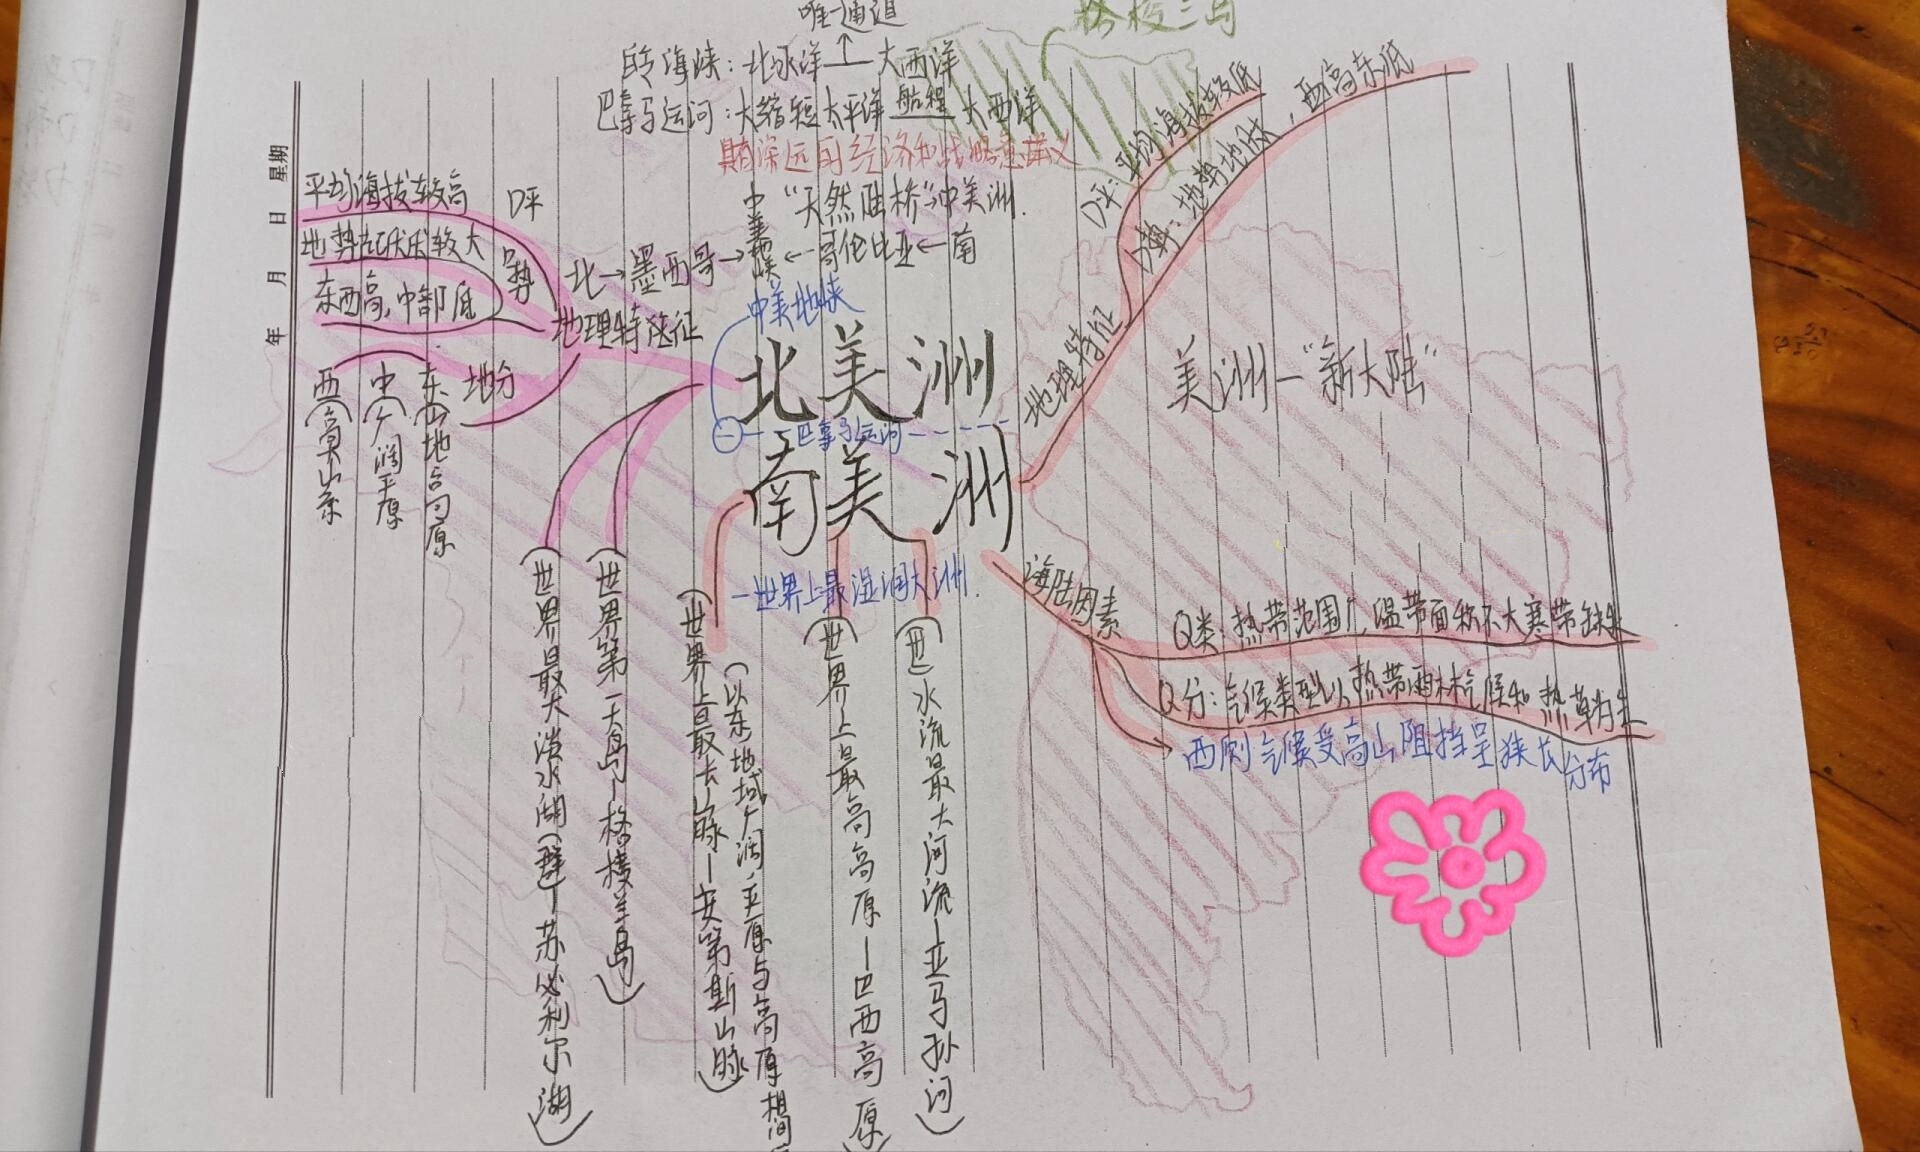 唯一通道
白令海峡：北冰洋——大西洋
巴拿马运河：大缩短太平洋 航程 大西洋
具有深远的经济和战略意义
"天然陆桥"→中美洲.
北→墨西哥→中美地峡←哥伦比亚←南
中美地峡
格棱兰岛
平均海拔较高
D平
地势起伏较大
东西高,中部低
D势
地理特征
地分
西（高大山系
中（广阔平原
东（山地高原
年 月 日 星期
北美洲
巴拿马运河
南美洲
—世界上最湿润大洲.
（世界最大淡水湖（群）—苏必利尔湖）
（世界第一大岛—格棱兰岛）
（世界上最长山脉—安第斯山脉）
（以东地域广阔,平原与高原相间
（世界上最高高原—巴西高原）
（世）水流最大河流—亚马孙河）
地理特征
D平：平均海拔较低
D势：地势地状，西高东低
美洲—"新大陆"
海陆因素
Q类：热带范围广,温带面积不大寒带缺失
Q分：气候类型以热带雨林气候和热草为主
西侧气候受高山阻挡呈狭长分布